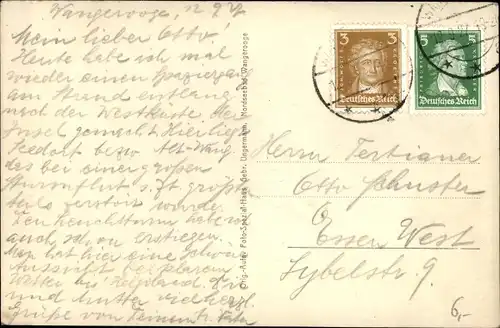 Wangerooge, 12.9.27
Mein lieber Otto,
Heute habe ich mal
wieder einen Spaziergang
am Strand entlang
nach der Westküste der
Insel gemacht. Hier lieg
Seedorf bezw. Alt-Wang
das bei einer großen
Sturmflut s. Zt. größt
teils zerstört wurde.
Den Leuchtturm haben
auch schon erstiegen.
Man hat hier eine schöne
Aussicht bei klarem
Wetter bis Helgoland. Dir
und Mutter viel herzl.
Grüße von Deinem Vater
Orig.-Aufn. Foto-Spezial-Haus Gebr. Ungermann, Nordseebad Wangerooge
3 3
Deutsches Reich
5 5
Deutsches Reich
Herrn Tertianer
Otto Schuster
Essen West
Sybelstr. 9.
6,-